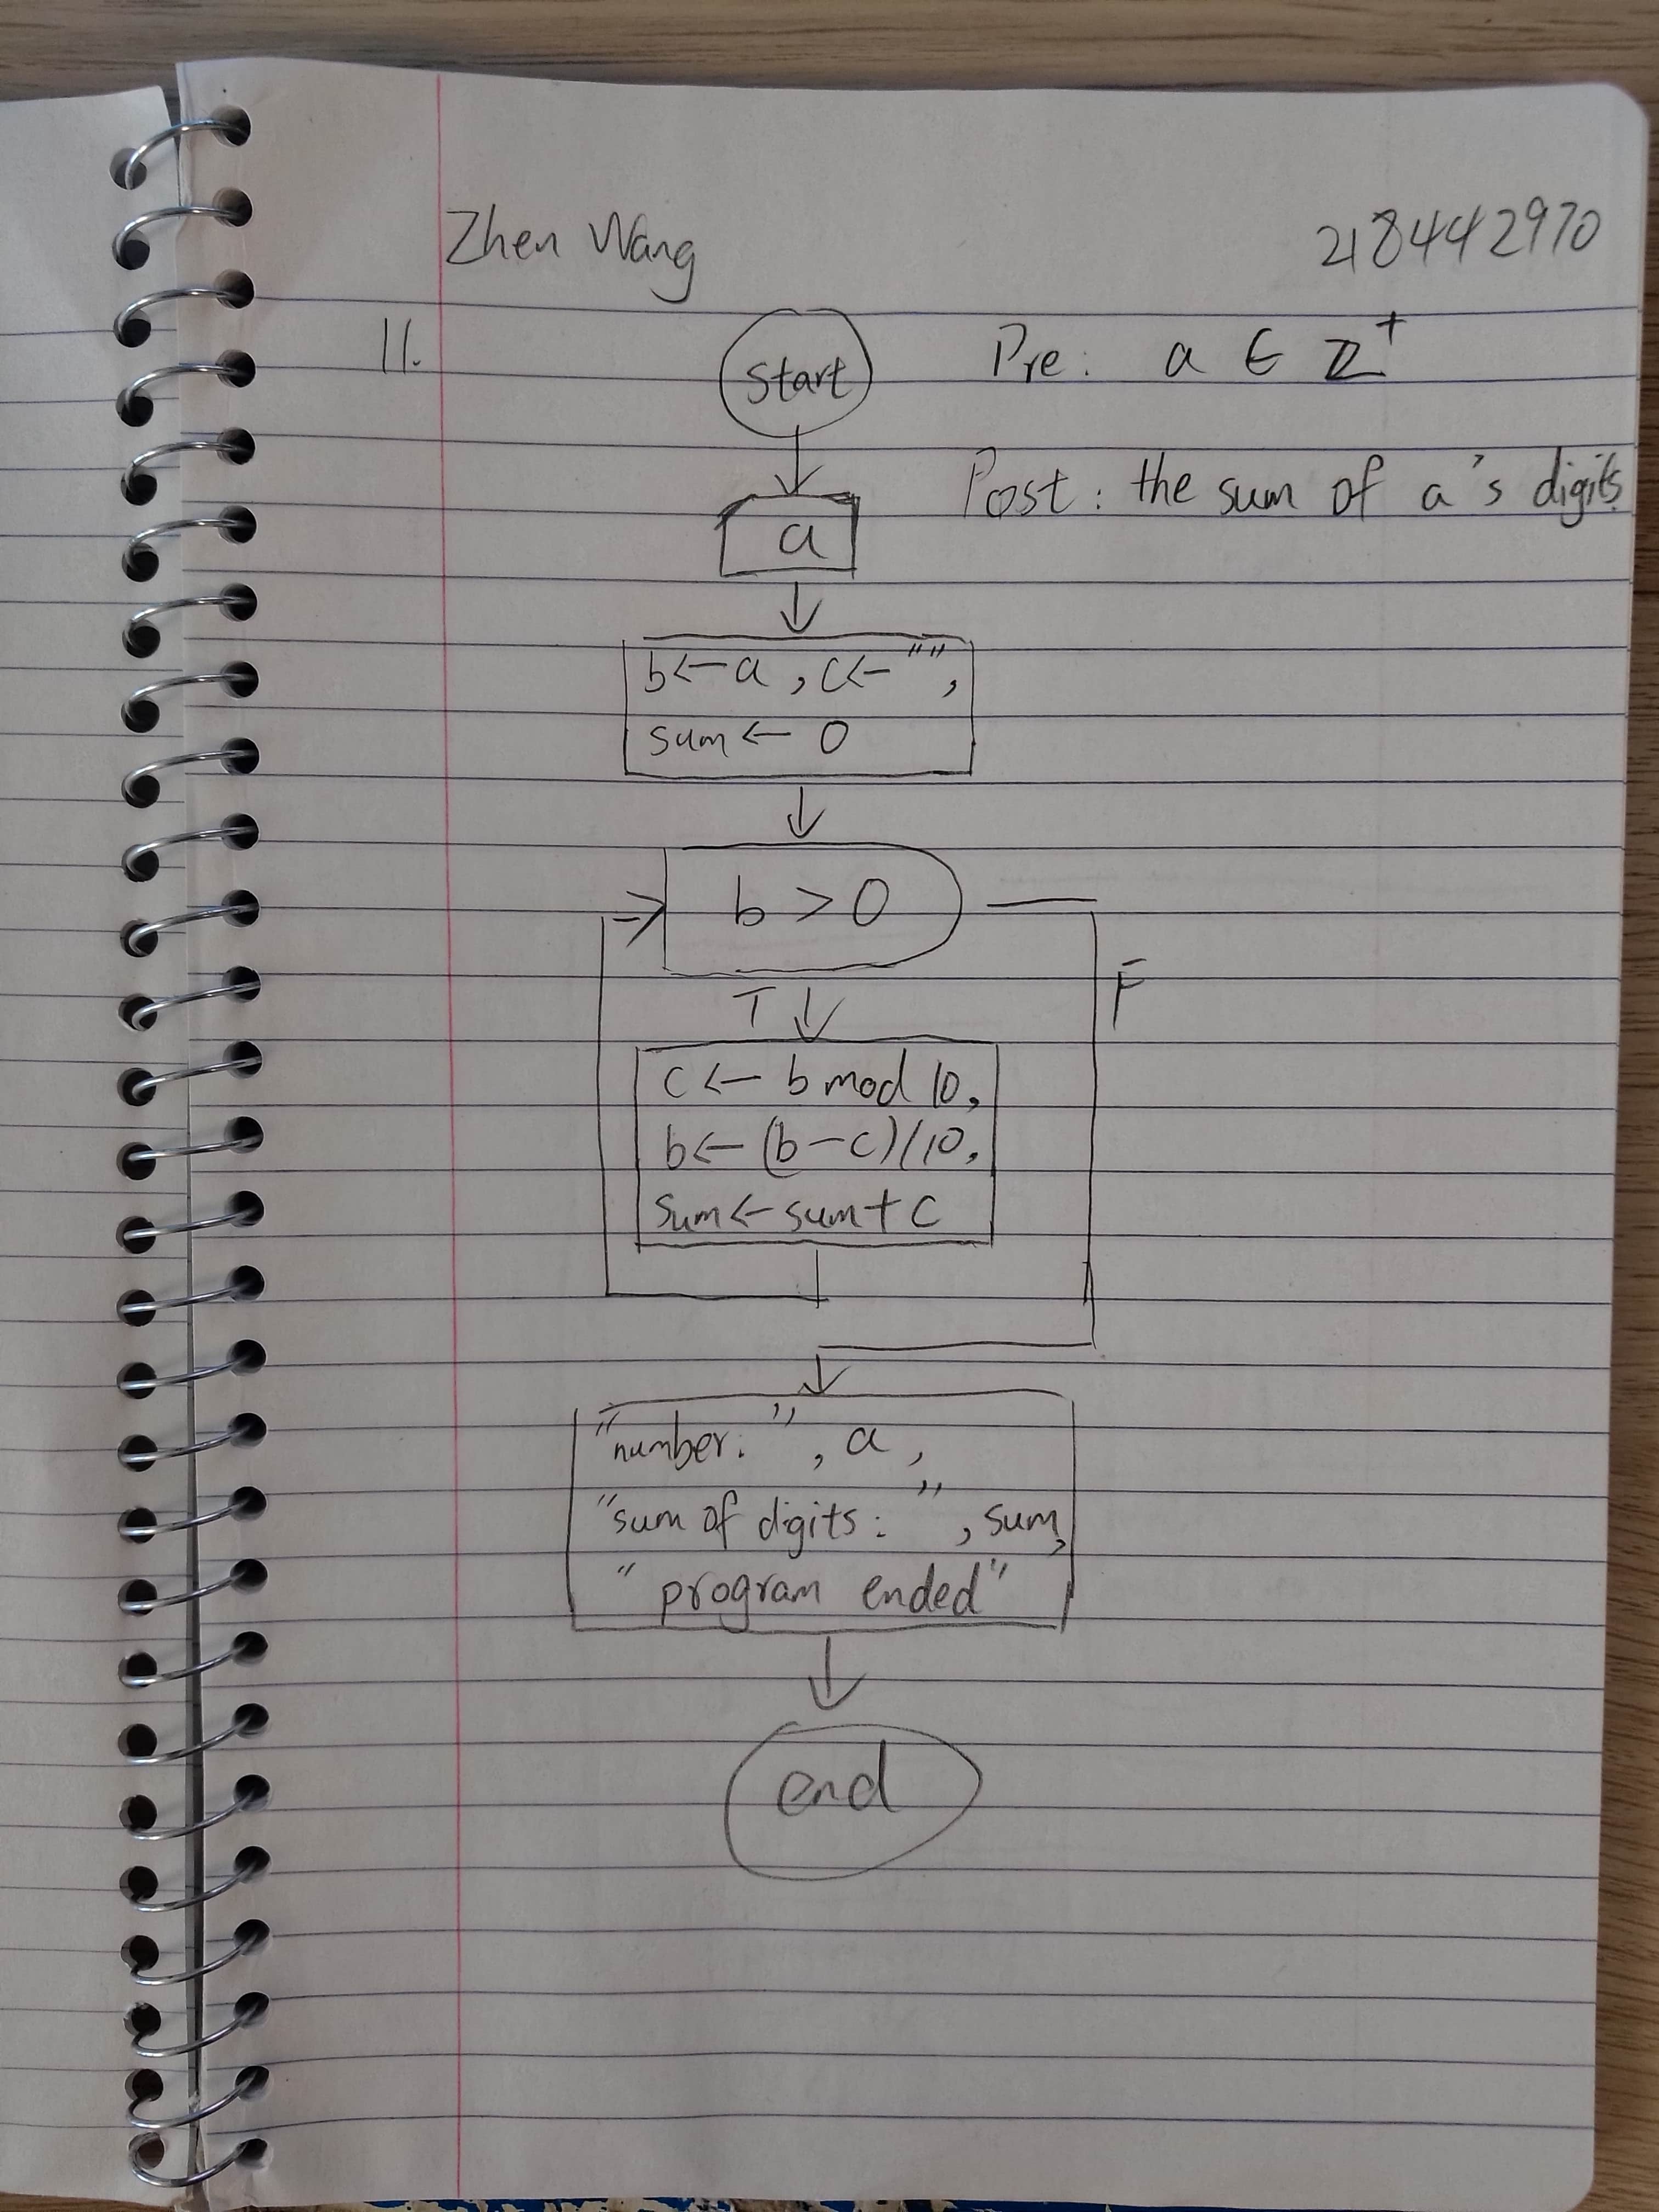 Zhen Wang 218442970
11.
start
Pre: a ∈ ℤ⁺
Post: the sum of a's digits
a
b←a, c←"",
sum← 0
b > 0
T
F
c ← b mod 10,
b← (b-c)/10,
sum← sum+ c
"number: ", a,
"sum of digits: ", sum,
"program ended"
end